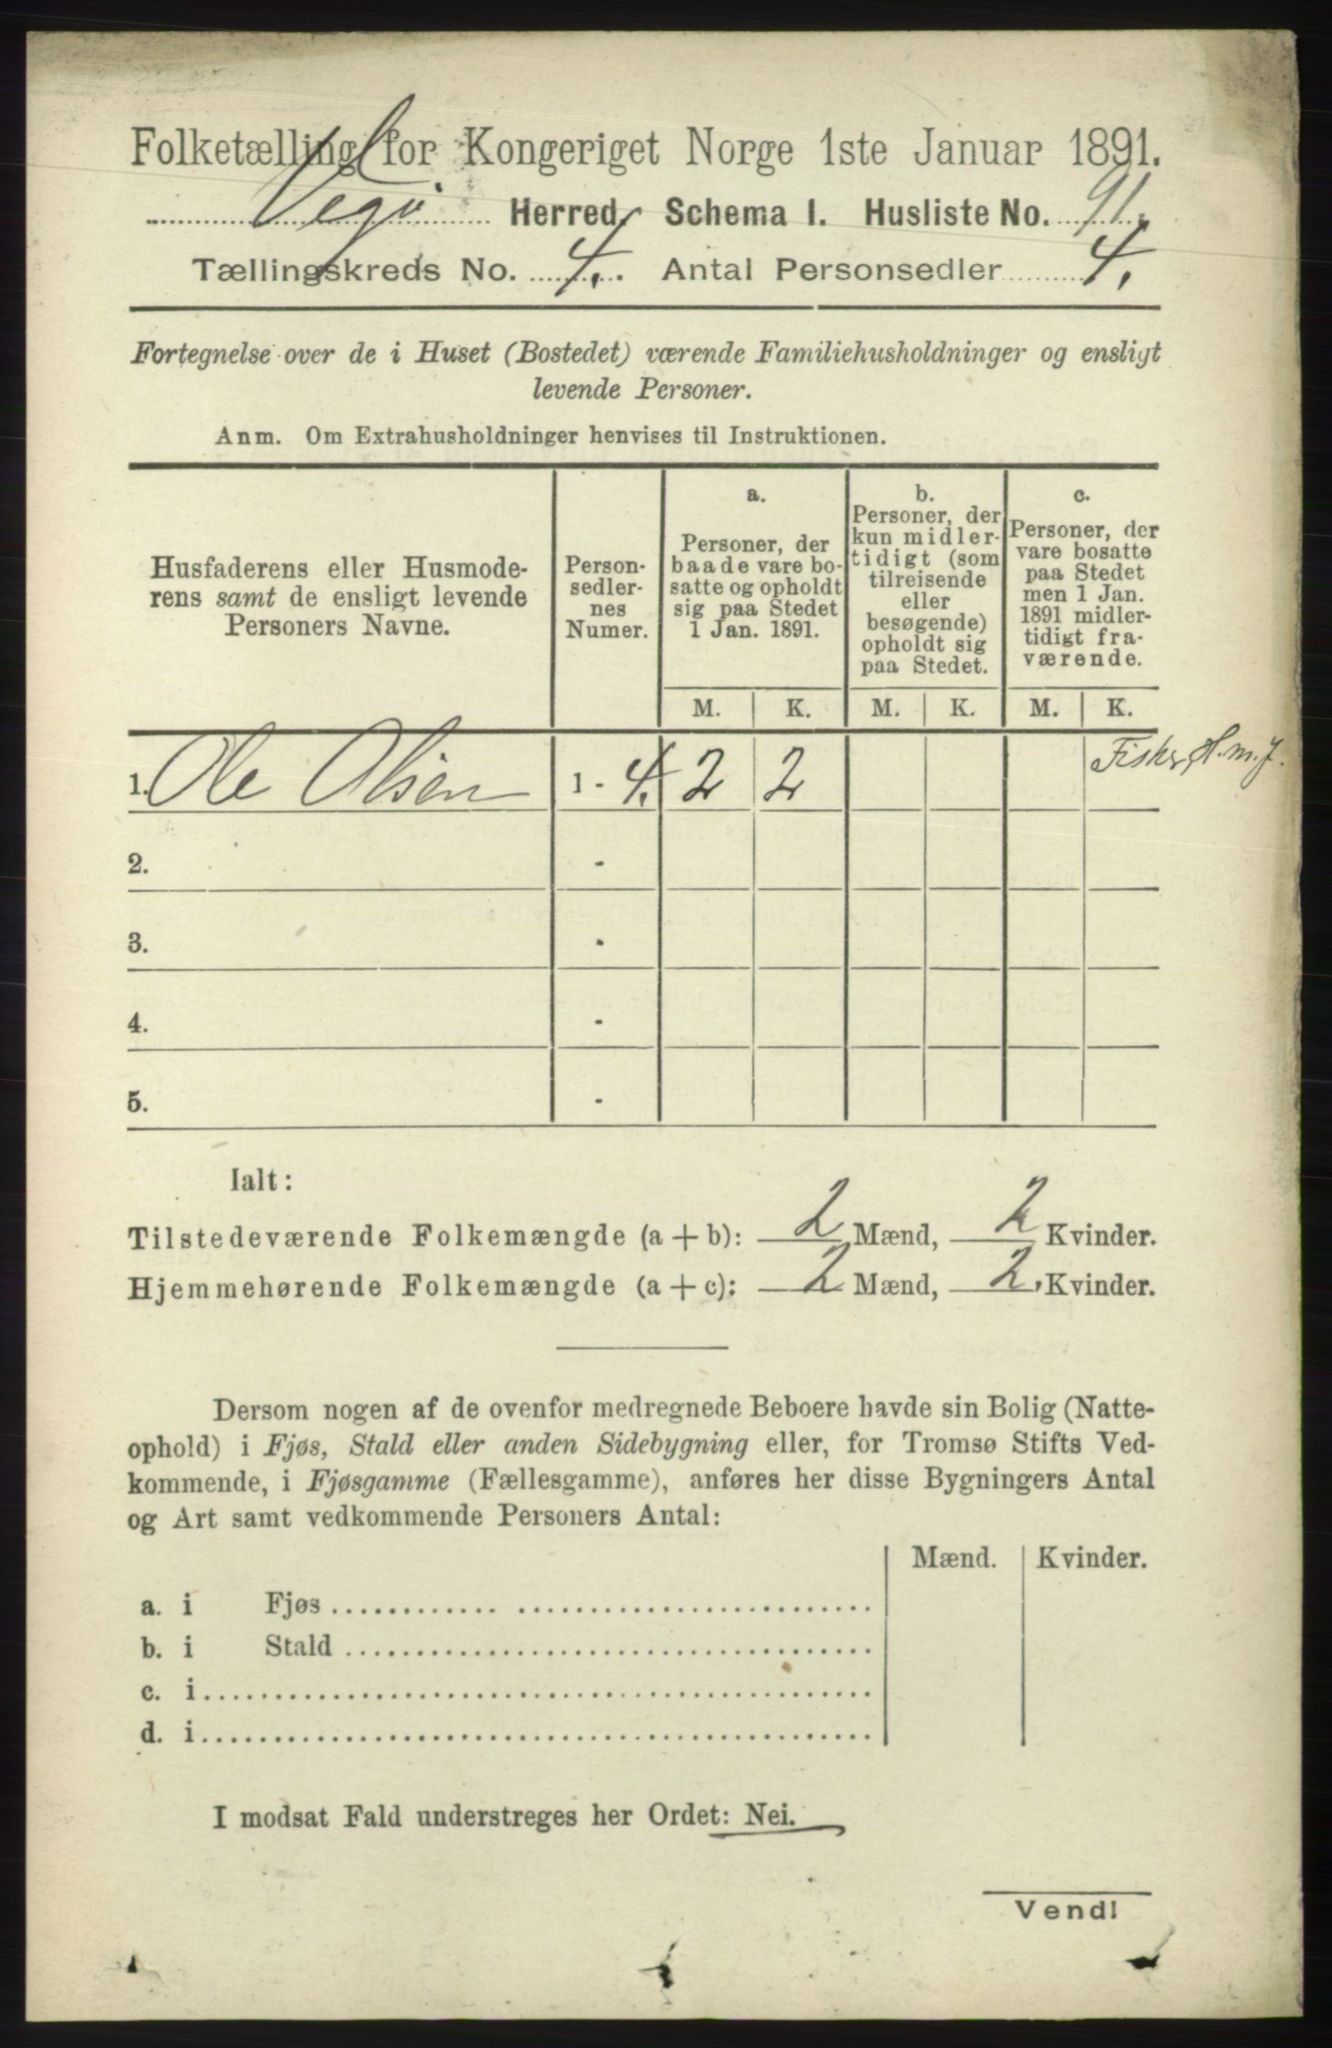 Folketælling for Kongeriget Norge 1ste Januar 1891.
Vegø Herred, Schema I. Husliste No. 91.
Tællingskreds No. 4. Antal Personsedler 4.
Fortegnelse over de i Huset (Bostedet) værende Familiehusholdninger og ensligt
levende Personer.
Anm. Om Extrahusholdninger henvises til Instruktionen.
Husfaderens eller Husmode-
rens samt de ensligt levende
Personers Navne.
Person-
sedler-
nes
Numer.
a.
Personer, der
baade vare bo-
satte og opholdt
sig paa Stedet
1 Jan. 1891.
b.
Personer, der
kun midler-
tidigt (som
tilreisende
eller
besøgende)
opholdt sig
paa Stedet.
c.
Personer, der
vare bosatte
paa Stedet
men 1 Jan.
1891 midler-
tidigt fra-
værende.
M. K. M. K. M. K.
1. Ole Olsen 1 - 4. 2 2 Fisker, H. m. J.
2. -
3. -
4. -
5. -
Ialt:
Tilstedeværende Folkemængde (a + b): 2 Mænd, 2 Kvinder.
Hjemmehørende Folkemængde (a + c): 2 Mænd, 2. Kvinder.
Dersom nogen af de ovenfor medregnede Beboere havde sin Bolig (Natte-
ophold) i Fjøs, Stald eller anden Sidebygning eller, for Tromsø Stifts Ved-
kommende, i Fjøsgamme (Fællesgamme), anføres her disse Bygningers Antal
og Art samt vedkommende Personers Antal:
Mænd. Kvinder.
a. i Fjøs
b. i Stald
c. i
d. i
I modsat Fald understreges her Ordet: Nei.
Vend!